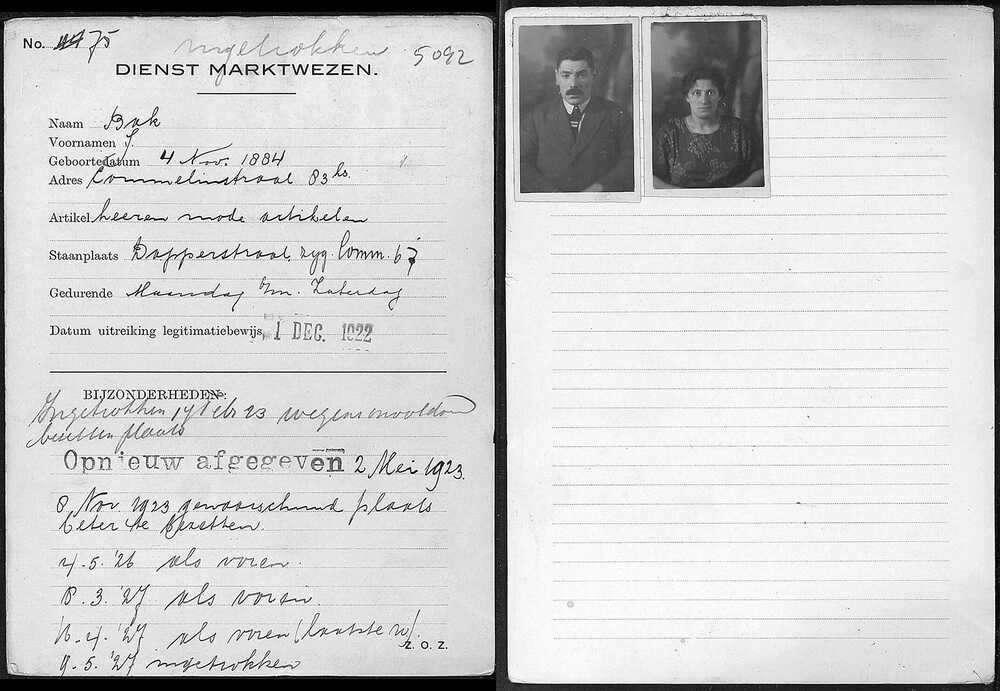 No. 75
ingetrokken 5092
DIENST MARKTWEZEN.
Naam Bak
Voornamen J.
Geboortedatum 4 Nov. 1884
Adres Commelinstraat 83 hs.
Artikel heeren mode artikelen
Staanplaats Dapperstraat, zyg. Comm. 67
Gedurende Maandag t/m. Zaterdag
Datum uitreiking legitimatiebewijs, 1 DEC. 1922
BIJZONDERHEDEN:
Ingetrokken 17 Febr 23 wegens onvoldoend
bezetten plaats
Opnieuw afgegeven 2 Mei 1923.
8 Nov. 1923 gewaarschuwd plaats
beter te bezetten.
4.5.'26 als voren.
8.3.'27 als voren.
16.4.'27 als voren (laatste w).
Z. O. Z.
9.5.'27 ingetrokken